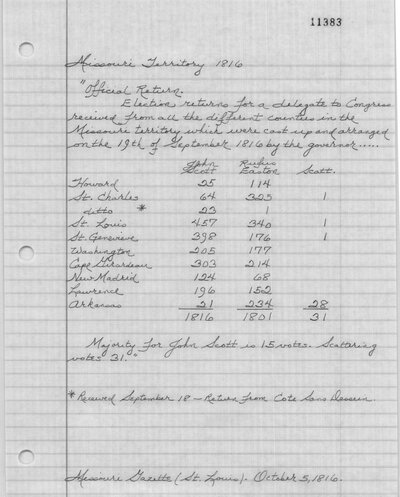 11383
Missouri Territory 1816
"Official Return.
Election returns for a delegate to Congress
received from all the different counties in the
Missouri territory which were cast up and arranged
on the 19th of September 1816 by the governor....
John Scott Rufus Easton Scatt.
Howard 25 114
St. Charles 64 325 1
ditto * 23 1
St. Louis 457 340 1
St. Genevieve 398 176 1
Washington 205 177
Cape Girardeau 303 214
New Madrid 124 68
Lawrence 196 152
Arkansas 21 234 28
1816 1801 31
Majority for John Scott is 15 votes. Scattering
votes 31."
* Received September 18 – Return from Cote Sans Dessein.
Missouri Gazette (St. Louis). October 5, 1816.